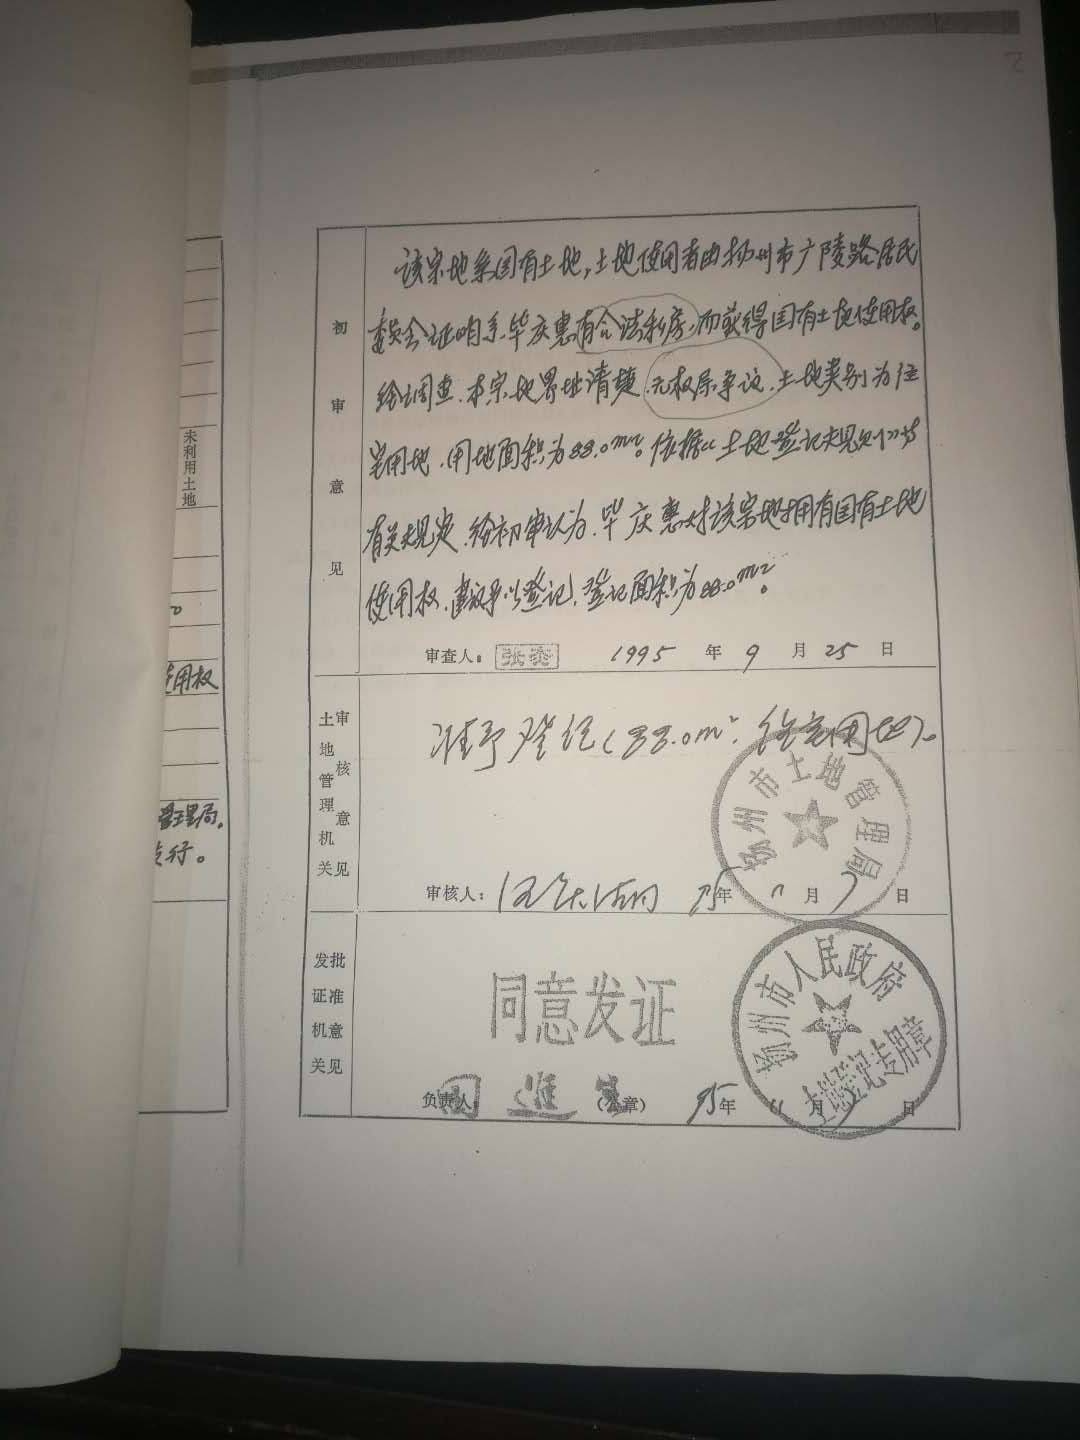 2
未利用土地
用权
管理局。
发行。
初审意见
该宗地系国有土地,土地使用者由扬州市广陵路居民
委员会证明系毕庆惠有合法私房,而获得国有土地使用权。
经调查,本宗地界址清楚,无权属争议,土地类别为住
宅用地,用地面积为88.0m²。依据《土地登记规则》等
有关规定,经初审认为,毕庆惠对该宗地拥有国有土地
使用权,建议予以登记,登记面积为88.0m²。
审查人: 1995 年 9 月 25 日
土地管理机关审核意见
准予登记(88.0m²,住宅用地)。
扬州市土地管理局
审核人: 95年 11 月 日
发证机关批准意见
同意发证
扬州市人民政府
土地登记专用章
负责人 (公章) 95年 11 月 日